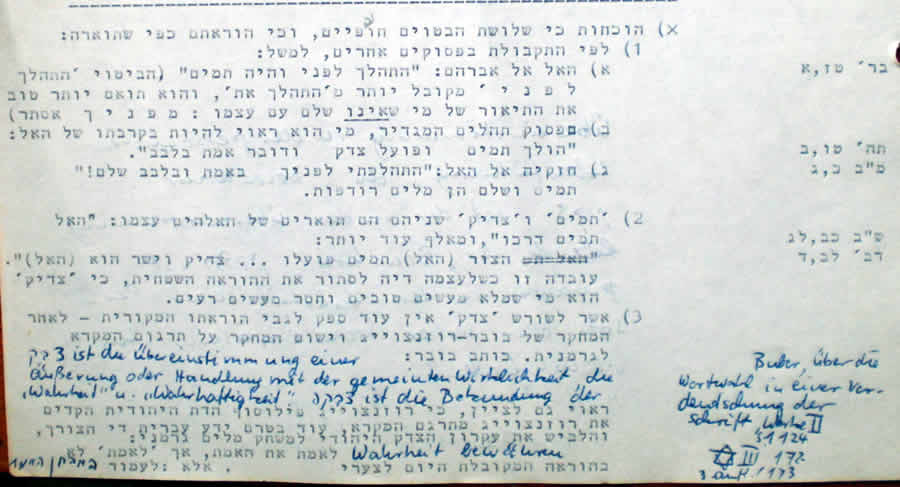 x) הוכחות כי שלושת הבטויים חופיים, וכי הוראתם כפי שתוארה:
1) לפי התקבולת בפסוקים אחרים, למשל:
בר' טז,א
א) האל אל אברהם: "התהלך לפני והיה תמים" (הביטוי 'התהלך
ל פ נ י ' מקובל יותר מ'התהלך את', והוא תואם יותר טוב
את התיאור של מי שאינו שלם עם עצמו: מ פ נ י ך אסתר)
ב) מפסוק תהלים המגדיר, מי הוא ראוי להיות בקרבתו של האל:
תה' טו,ב
"הולך תמים ופועל צדק ודובר אמת בלבב".
מ"ב כ,ג
ג) חזקיה אל האל:"התהלכתי לפניך באמת ובלבב שלם!"
תמים ושלם הן מלים רודפות.
2) 'תמים' ו'צדיק' שניהם הם תוארים של האלהים עצמו: "האל
ש"ב כב,לג
תמים דרכו",ומאלף עוד יותר:
דב' לב,ד
הצור (האל) תמים פועלו ... צדיק וישר הוא (האל)".
עובדה זו כשלעצמה דיה לסתור את ההוראה השטחית, כי 'צדיק'
הוא מי שמלא מעשים טובים וחסר מעשים רעים.
3) אשר לשורש 'צדק' אין עוד ספק לגבי הוראתו המקורית - לאחר
המחקר של בובר-רוזנצוייג וישום המחקר על תרגום המקרא
לגרמנית. כותב בובר:
צדק ist die Übereinstimmung einer
Äußerung oder Handlung mit der gemeinten Wirklichkeit die
"Wahrheit" u. "Wahrhaftigkeit" צדקה ist die Bekundung der
Buber, über die
Wortwahl in einer Ver-
deutschung der
Schrift Werke II
S 1124
III 172
3 Aufl. 173
ראוי גם לציין, כי רוזנצוייג פילוסוף הדת היהודית הקדים
את רוזנצוייג מתרגם המקרא, עוד בטרם ידע עברית די הצורך,
והלביש את עקרון הצדק היהודי למשחק מלים גרמני:
Wahrheit bewähren לאמת את האמת, אך 'לאמת' לא
בהוראה המקובלת היום לצערי . אלא :לעמוד